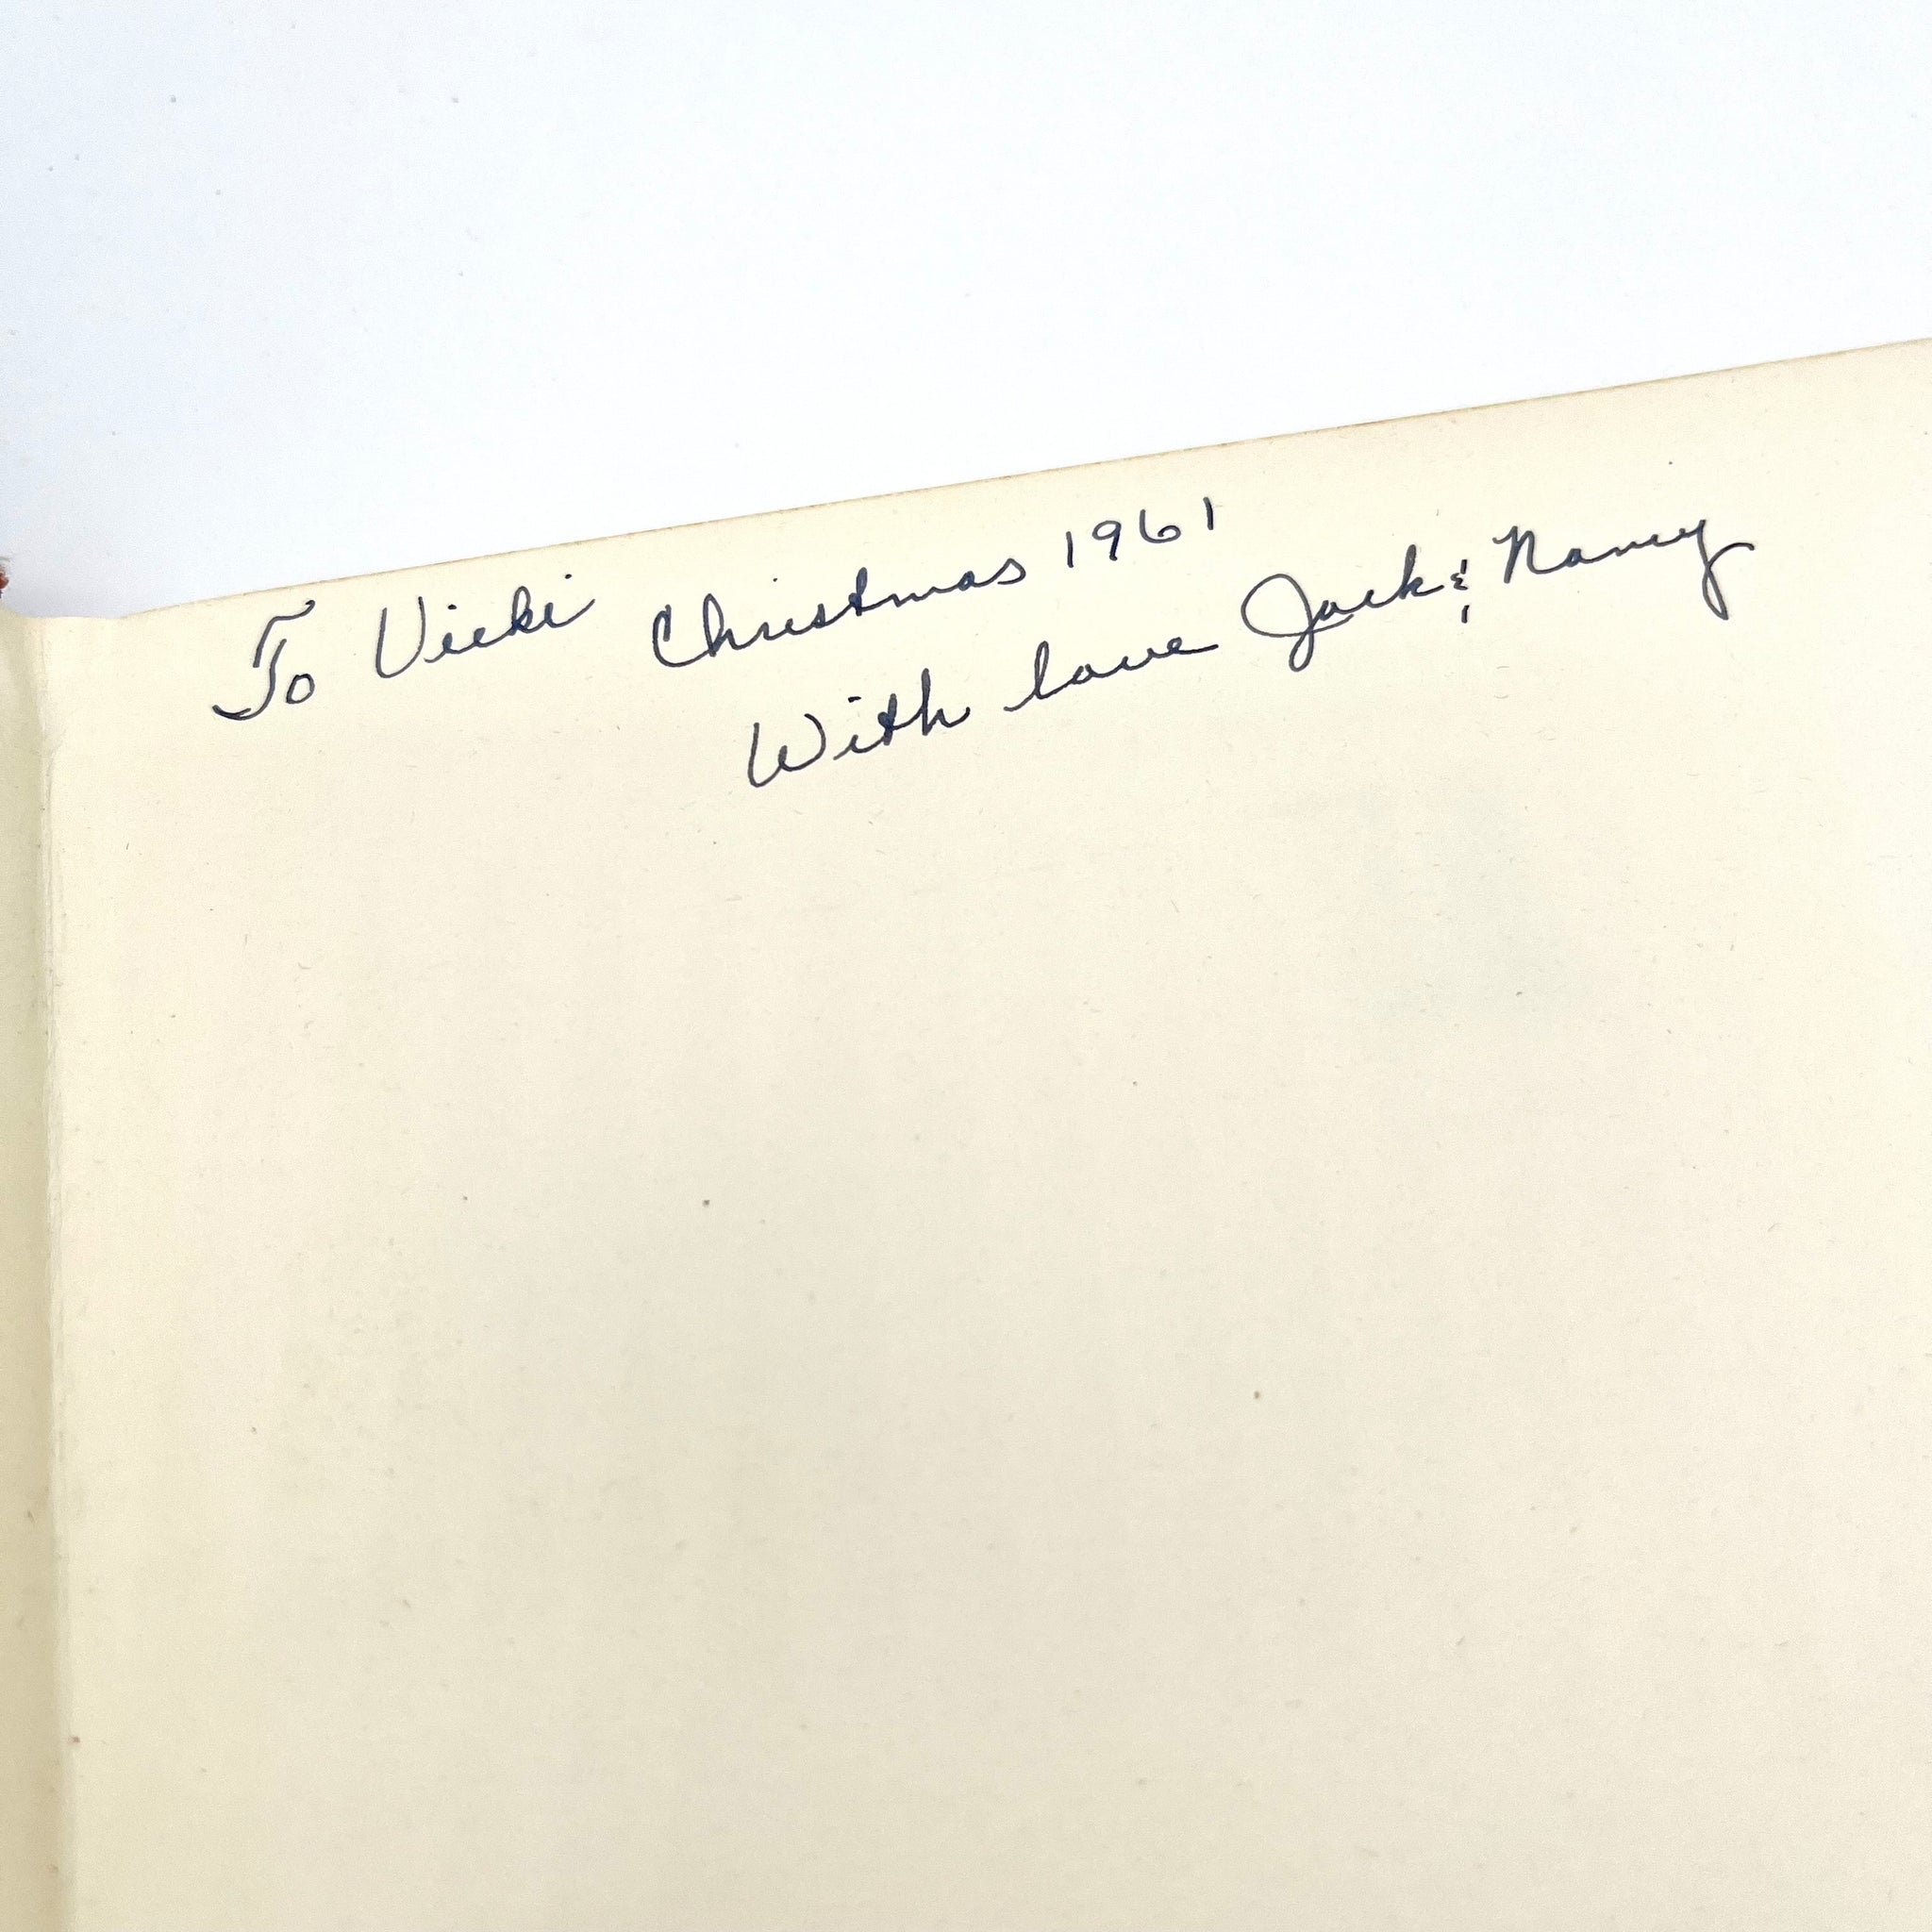 To Vicki Christmas 1961
With love Jack & Nancy